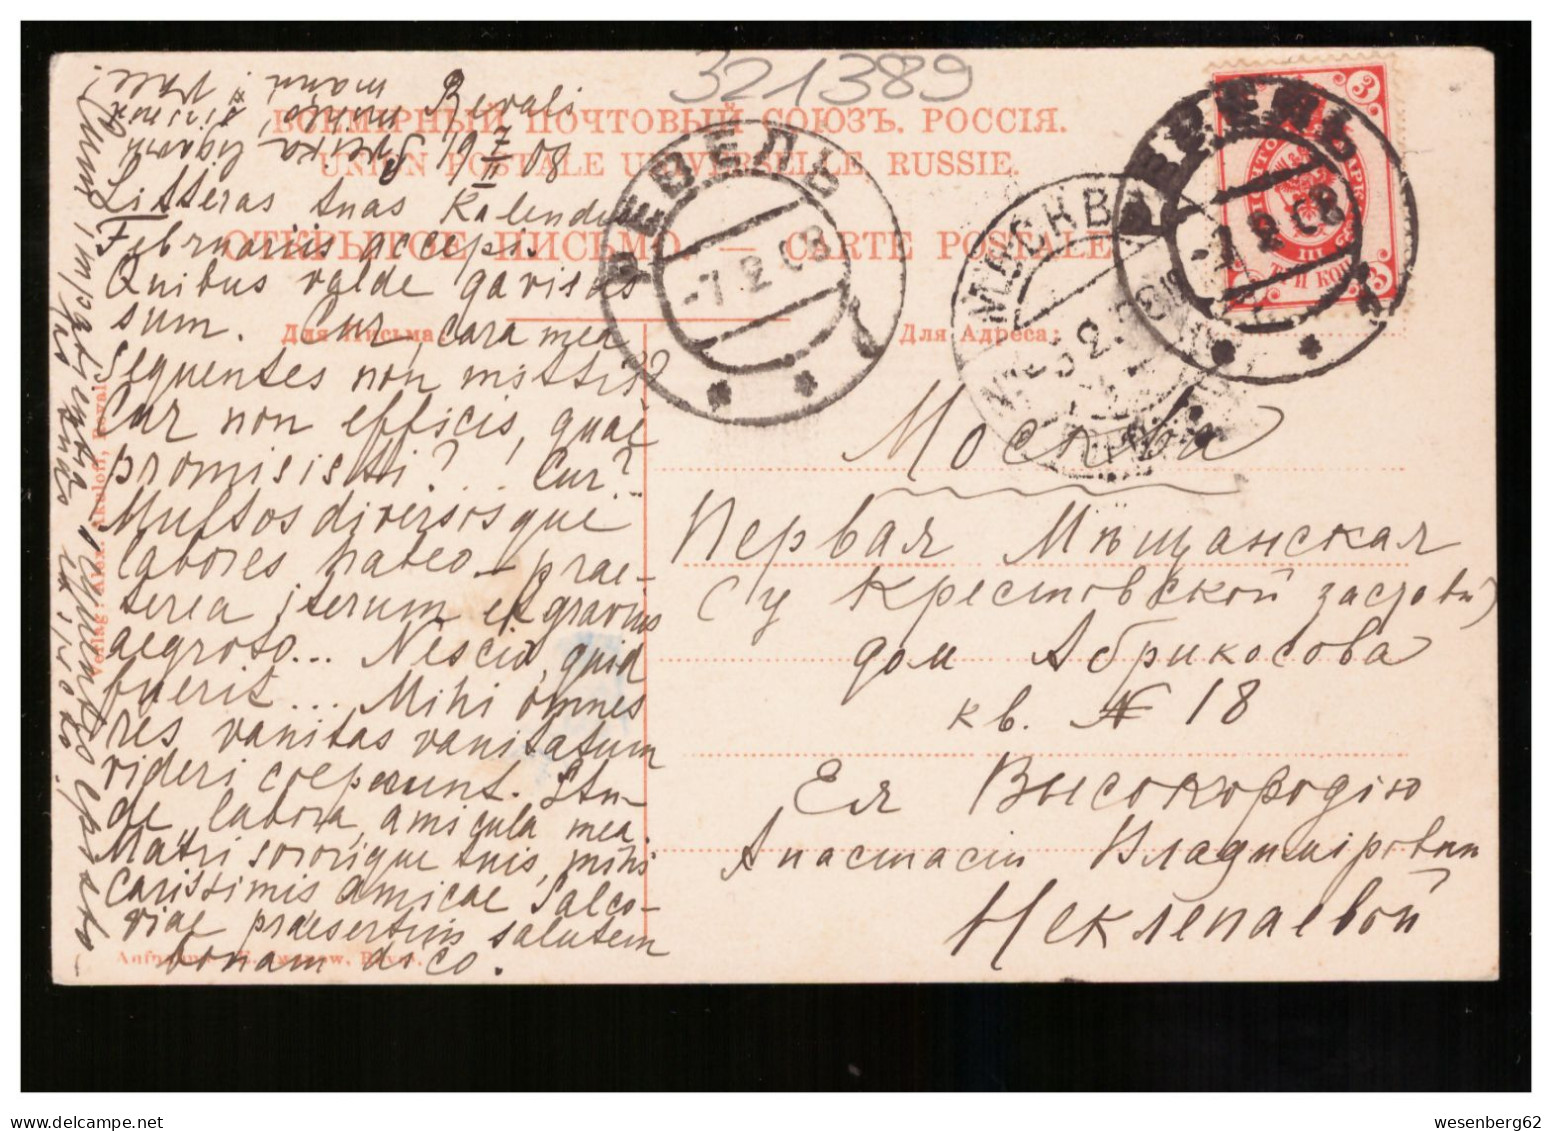 321389
ВСЕМІРНЫЙ ПОЧТОВЫЙ СОЮЗЪ. РОССІЯ.
UNION POSTALE UNIVERSELLE. RUSSIE.
ОТКРЫТОЕ ПИСЬМО. — CARTE POSTALE
Для Письма:
Для Адреса:
РЕВЕЛЬ
-7 2 08
МОСКВА
РЕВЕЛЬ
-7 2 08
3
3
3
ТРИ КОП
Revali
19 7/II 08
Litteras tuas Kalendis
Februariis accepi
Quibus valde gavisus
sum. Cur, cara mea
sequentes non mittis?
Cur non efficis, quae
promisisti?..! Cur?..
Multos diversosque
labores habeo – prae-
terea iterum et gravius
aegroto... Nescio, quid
fuerit... Mihi omnes
res vanitas vanitatum
videri coeperunt. Stu-
de, labora, amicula mea.
Matri sororique tuis, mihi
carissimis amicae Salco-
viae praesertim salutem
bonam dico.
Cum impatientia
et
Москва
Первая Мѣщанская
(у Крестовской заставы)
дом Абрикосова
кв. № 18
Ея Высокородію
Анастасіи Владиміровнѣ
Неклепаевой
Verlag: Alex. Akeloff, Reval
wesenberg62